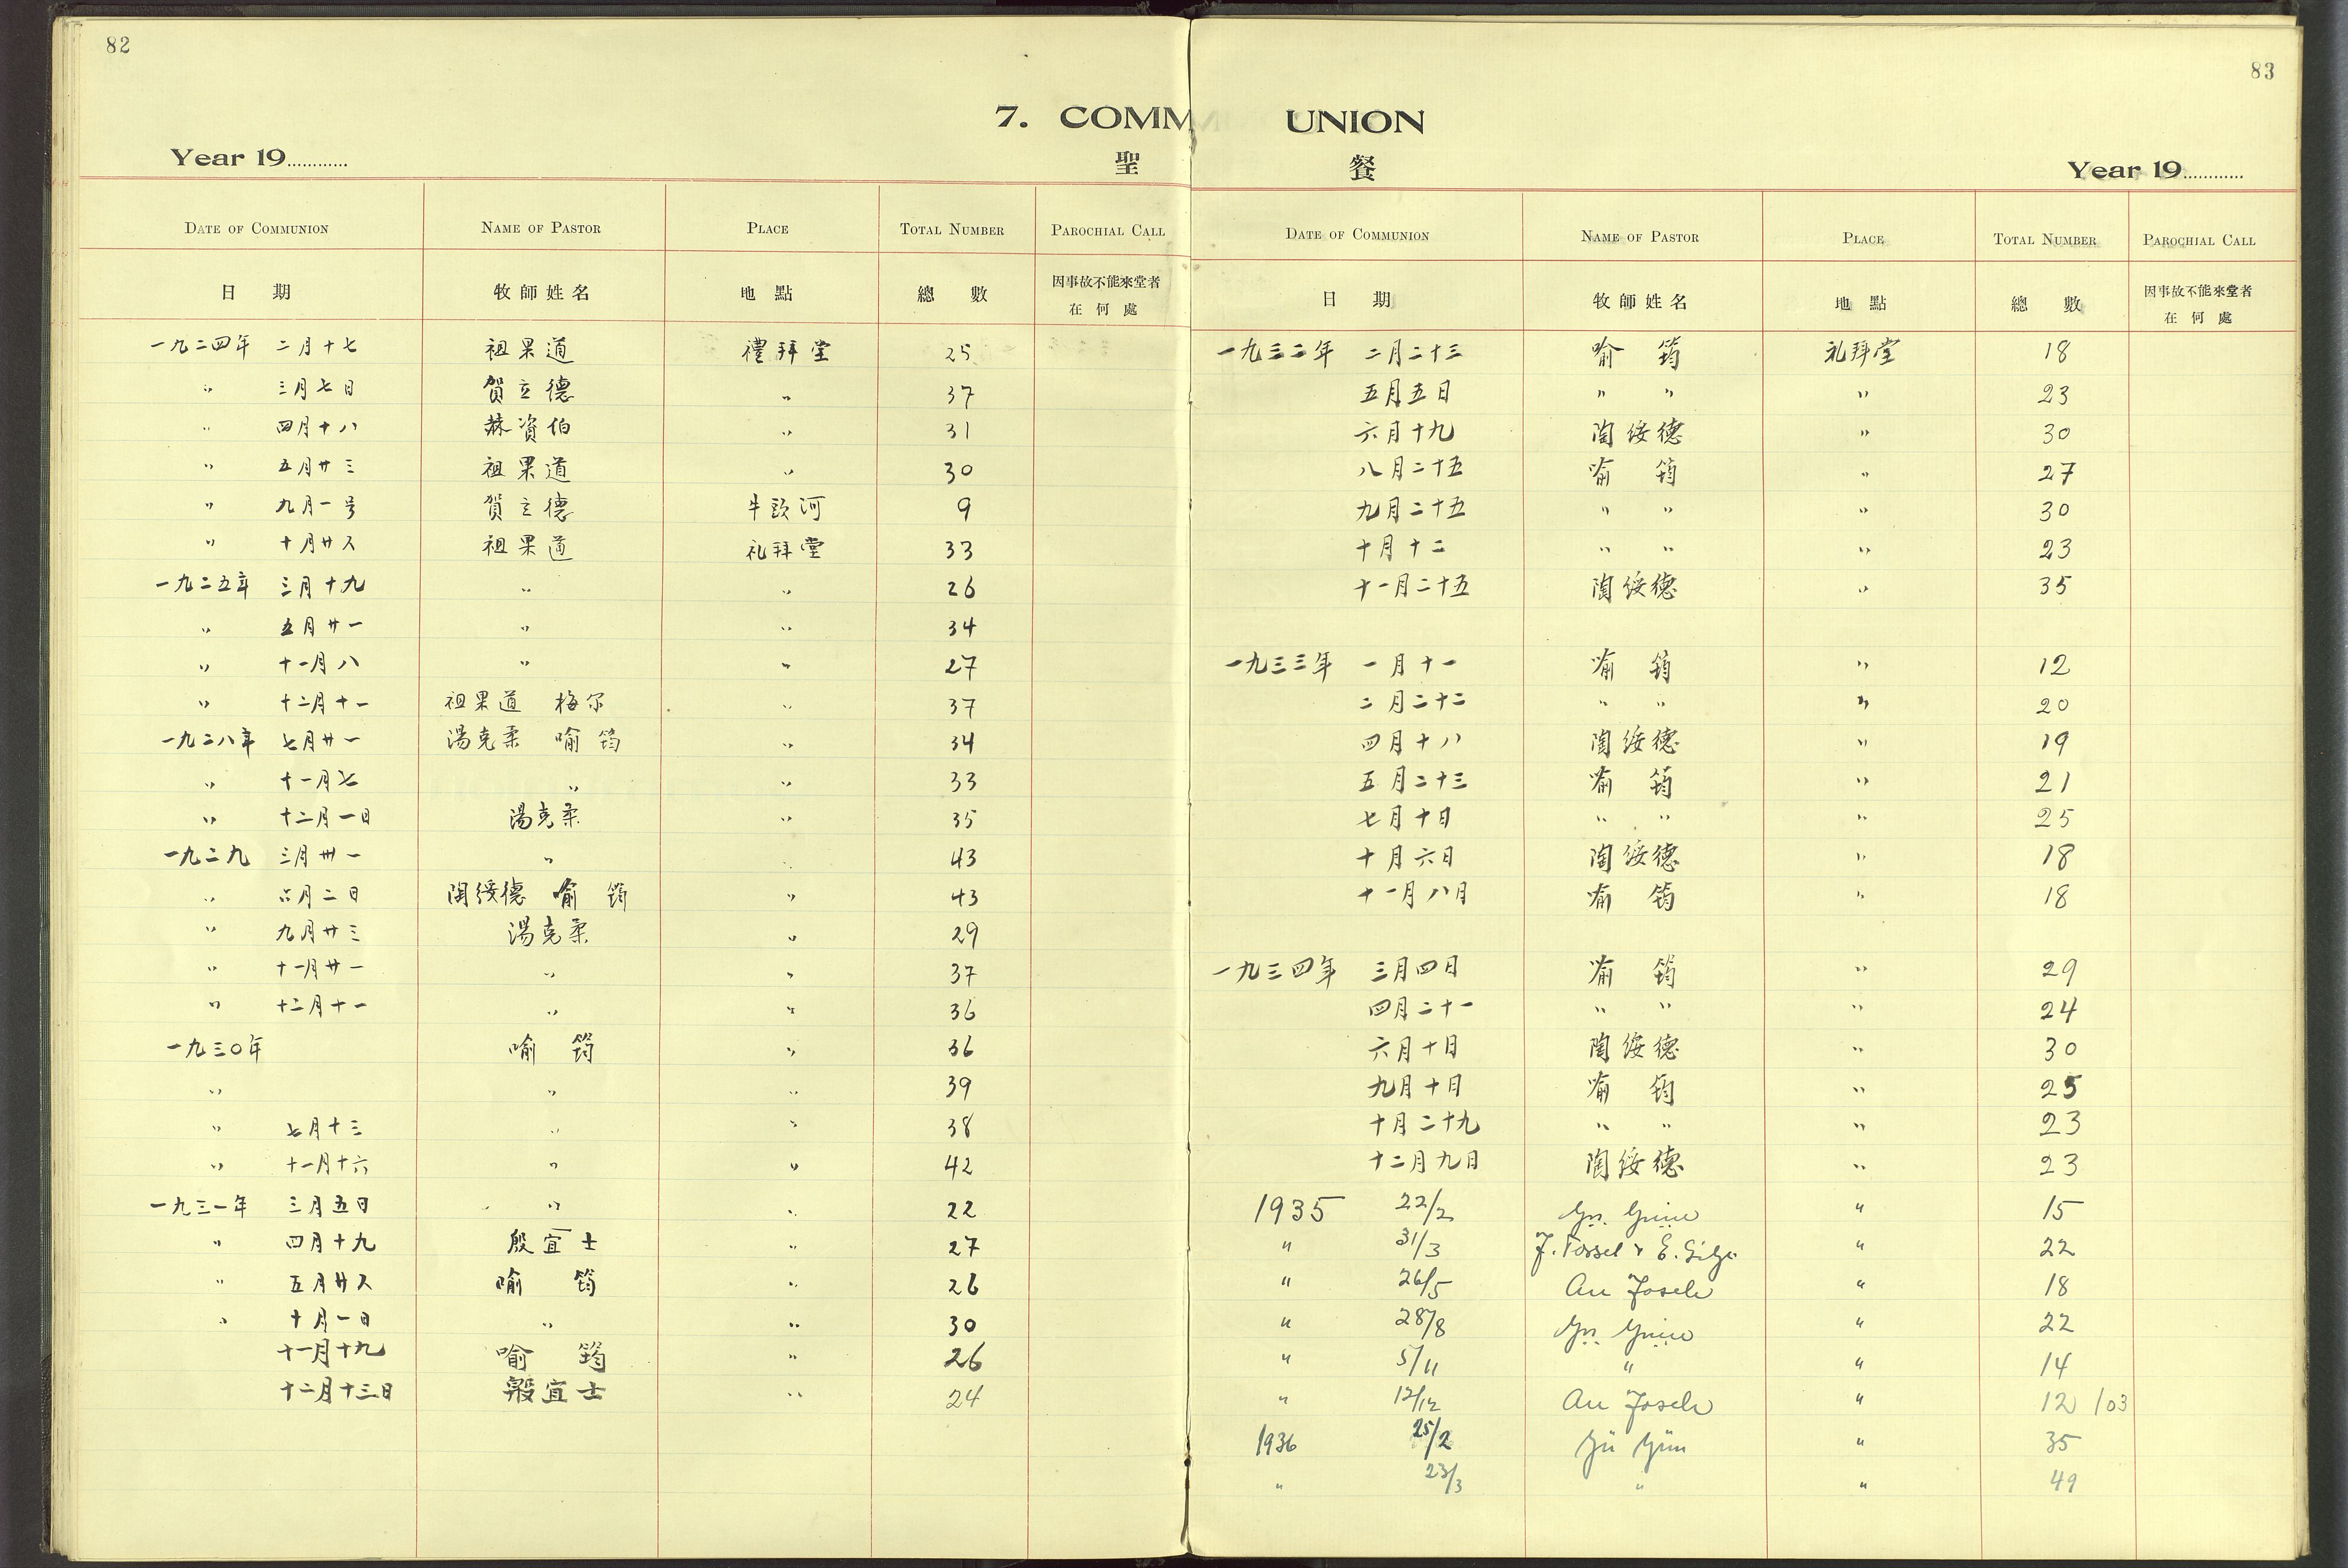 82
7. COMM
Year 19............
聖
DATE OF COMMUNION NAME OF PASTOR PLACE TOTAL NUMBER PAROCHIAL CALL
日 期 牧師姓名 地點 總數 因事故不能來堂者在何處
一九二四年 二月十七 祖果道 禮拜堂 25
〃 三月七日 賀立德 〃 37
〃 四月十八 赫資伯 〃 31
〃 五月廿三 祖果道 〃 30
〃 九月一号 賀立德 牛頭河 9
〃 十月廿 祖果道 礼拜堂 33
一九二五年 三月十九 〃 〃 26
〃 五月廿一 〃 〃 34
〃 十一月八 〃 〃 27
〃 十二月十一 祖果道 梅尔 〃 37
一九二八年 七月廿一 湯克柔 喻筠 〃 34
〃 十一月七 〃 〃 33
〃 十二月一日 湯克柔 〃 35
一九二九 三月卅一 〃 〃 43
〃 六月二日 陶绥德 喻筠 〃 43
〃 九月廿三 湯克柔 〃 29
〃 十一月廿一 〃 〃 37
〃 十二月十一 〃 〃 36
一九三〇年 喻筠 〃 36
〃 〃 〃 39
〃 七月十三 〃 〃 38
〃 十一月十六 〃 〃 42
一九三一年 三月五日 〃 〃 22
〃 四月十九 殷宜士 〃 27
〃 五月廿 喻筠 〃 26
〃 十月一日 〃 〃 30
十一月十九 喻筠 〃 26
十二月十三日 殷宜士 〃 24
83
UNION
餐
Year 19............
DATE OF COMMUNION NAME OF PASTOR PLACE TOTAL NUMBER PAROCHIAL CALL
日 期 牧師姓名 地點 總數 因事故不能來堂者在何處
一九三二年 二月二十三 喻筠 礼拜堂 18
五月五日 〃 〃 〃 23
六月十九 陶绥德 〃 30
八月二十五 喻筠 〃 27
九月二十五 〃 〃 〃 30
十月十二 〃 〃 〃 23
十一月二十五 陶绥德 〃 35
一九三三年 一月十一 喻筠 〃 12
二月二十二 〃 〃 〃 20
四月十八 陶绥德 〃 19
五月二十三 喻筠 〃 21
七月十日 〃 〃 〃 25
十月六日 陶绥德 〃 18
十一月八日 喻筠 〃 18
一九三四年 三月四日 喻筠 〃 29
四月二十一 〃 〃 〃 24
六月十日 陶绥德 〃 30
九月十日 喻筠 〃 25
十月二十九 〃 〃 〃 23
十二月九日 陶绥德 〃 23
1935 22/2 〃 15
〃 31/3 〃 22
〃 26/5 〃 18
〃 28/8 〃 22
〃 5/11 〃 〃 14
〃 12/12 〃 12 /03
1936 25/2 Yü Yün 〃 35
〃 23/3 〃 〃 49